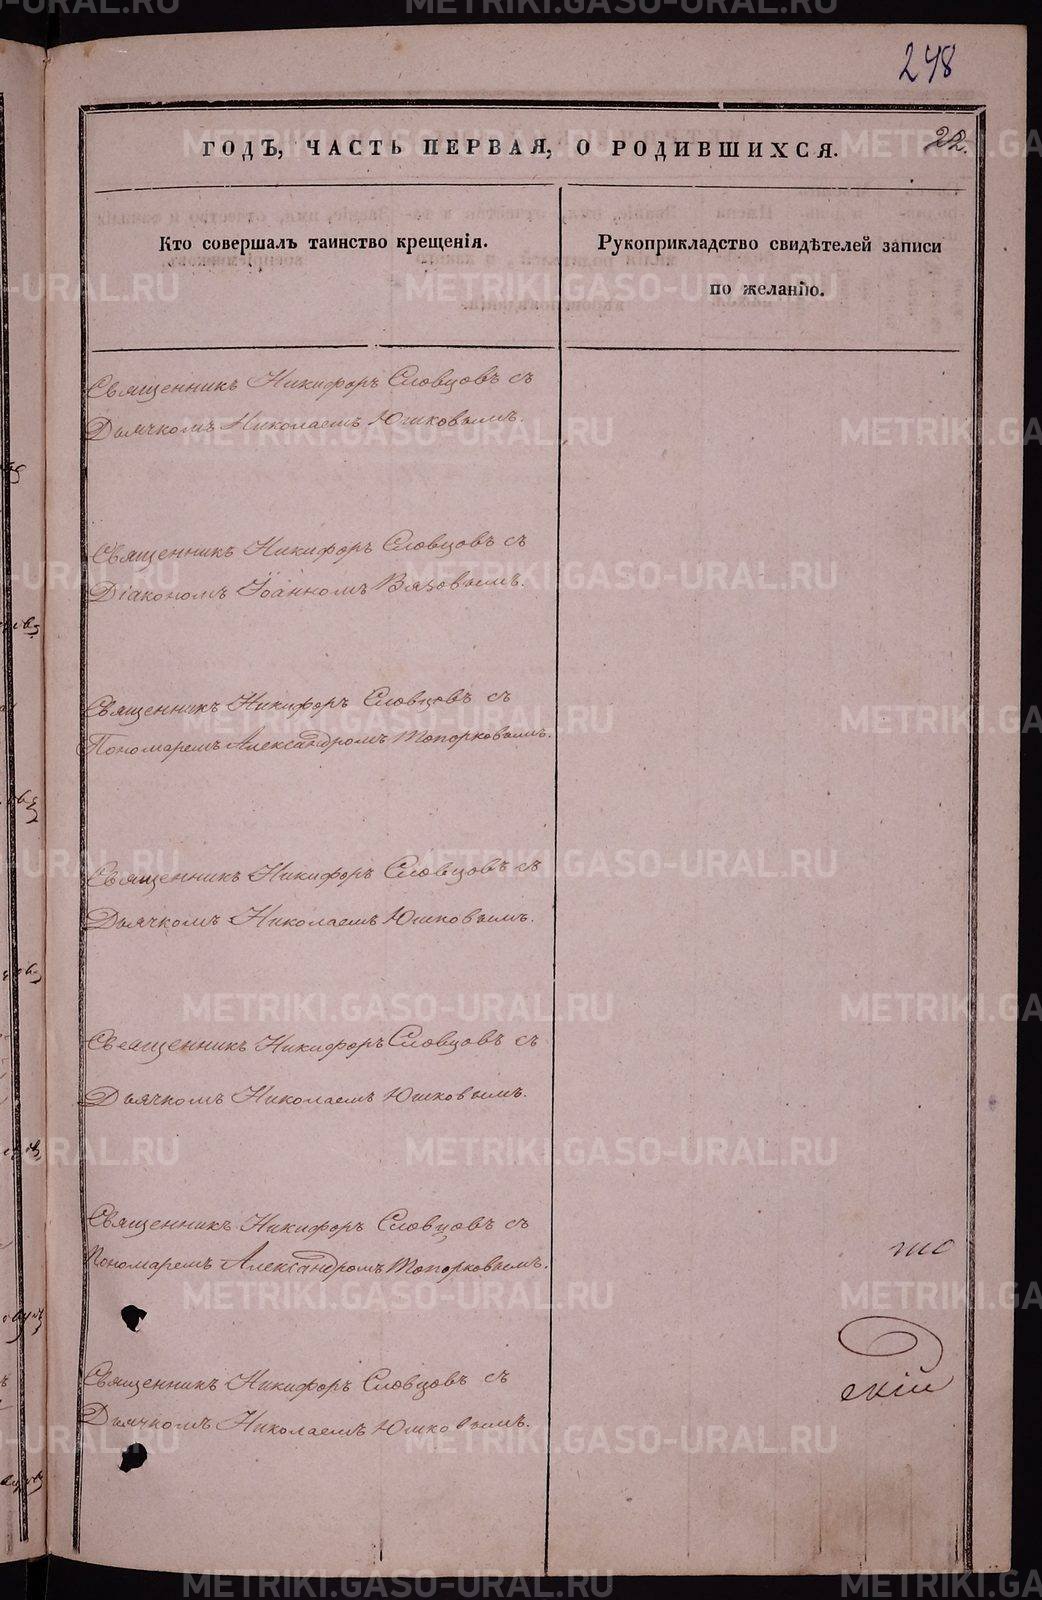 248
22.
ГОДЪ, ЧАСТЬ ПЕРВАЯ, О РОДИВШИХСЯ.
Кто совершалъ таинство крещенія.
Рукоприкладство свидѣтелей записи
по желанію.
Священникъ Никифоръ Словцовъ съ
Дьячкомъ Николаемъ Юшковымъ.
Священникъ Никифоръ Словцовъ съ
Діакономъ Іоанномъ Вязовымъ.
Священникъ Никифоръ Словцовъ съ
Пономаремъ Александромъ Топорковымъ.
Священникъ Никифоръ Словцовъ съ
Дьячкомъ Николаемъ Юшковымъ.
Священникъ Никифоръ Словцовъ съ
Дьячкомъ Николаемъ Юшковымъ.
Священникъ Никифоръ Словцовъ съ
Пономаремъ Александромъ Топорковымъ.
Священникъ Никифоръ Словцовъ съ
Дьячкомъ Николаемъ Юшковымъ.
скій
METRIKI.GASO-URAL.RU